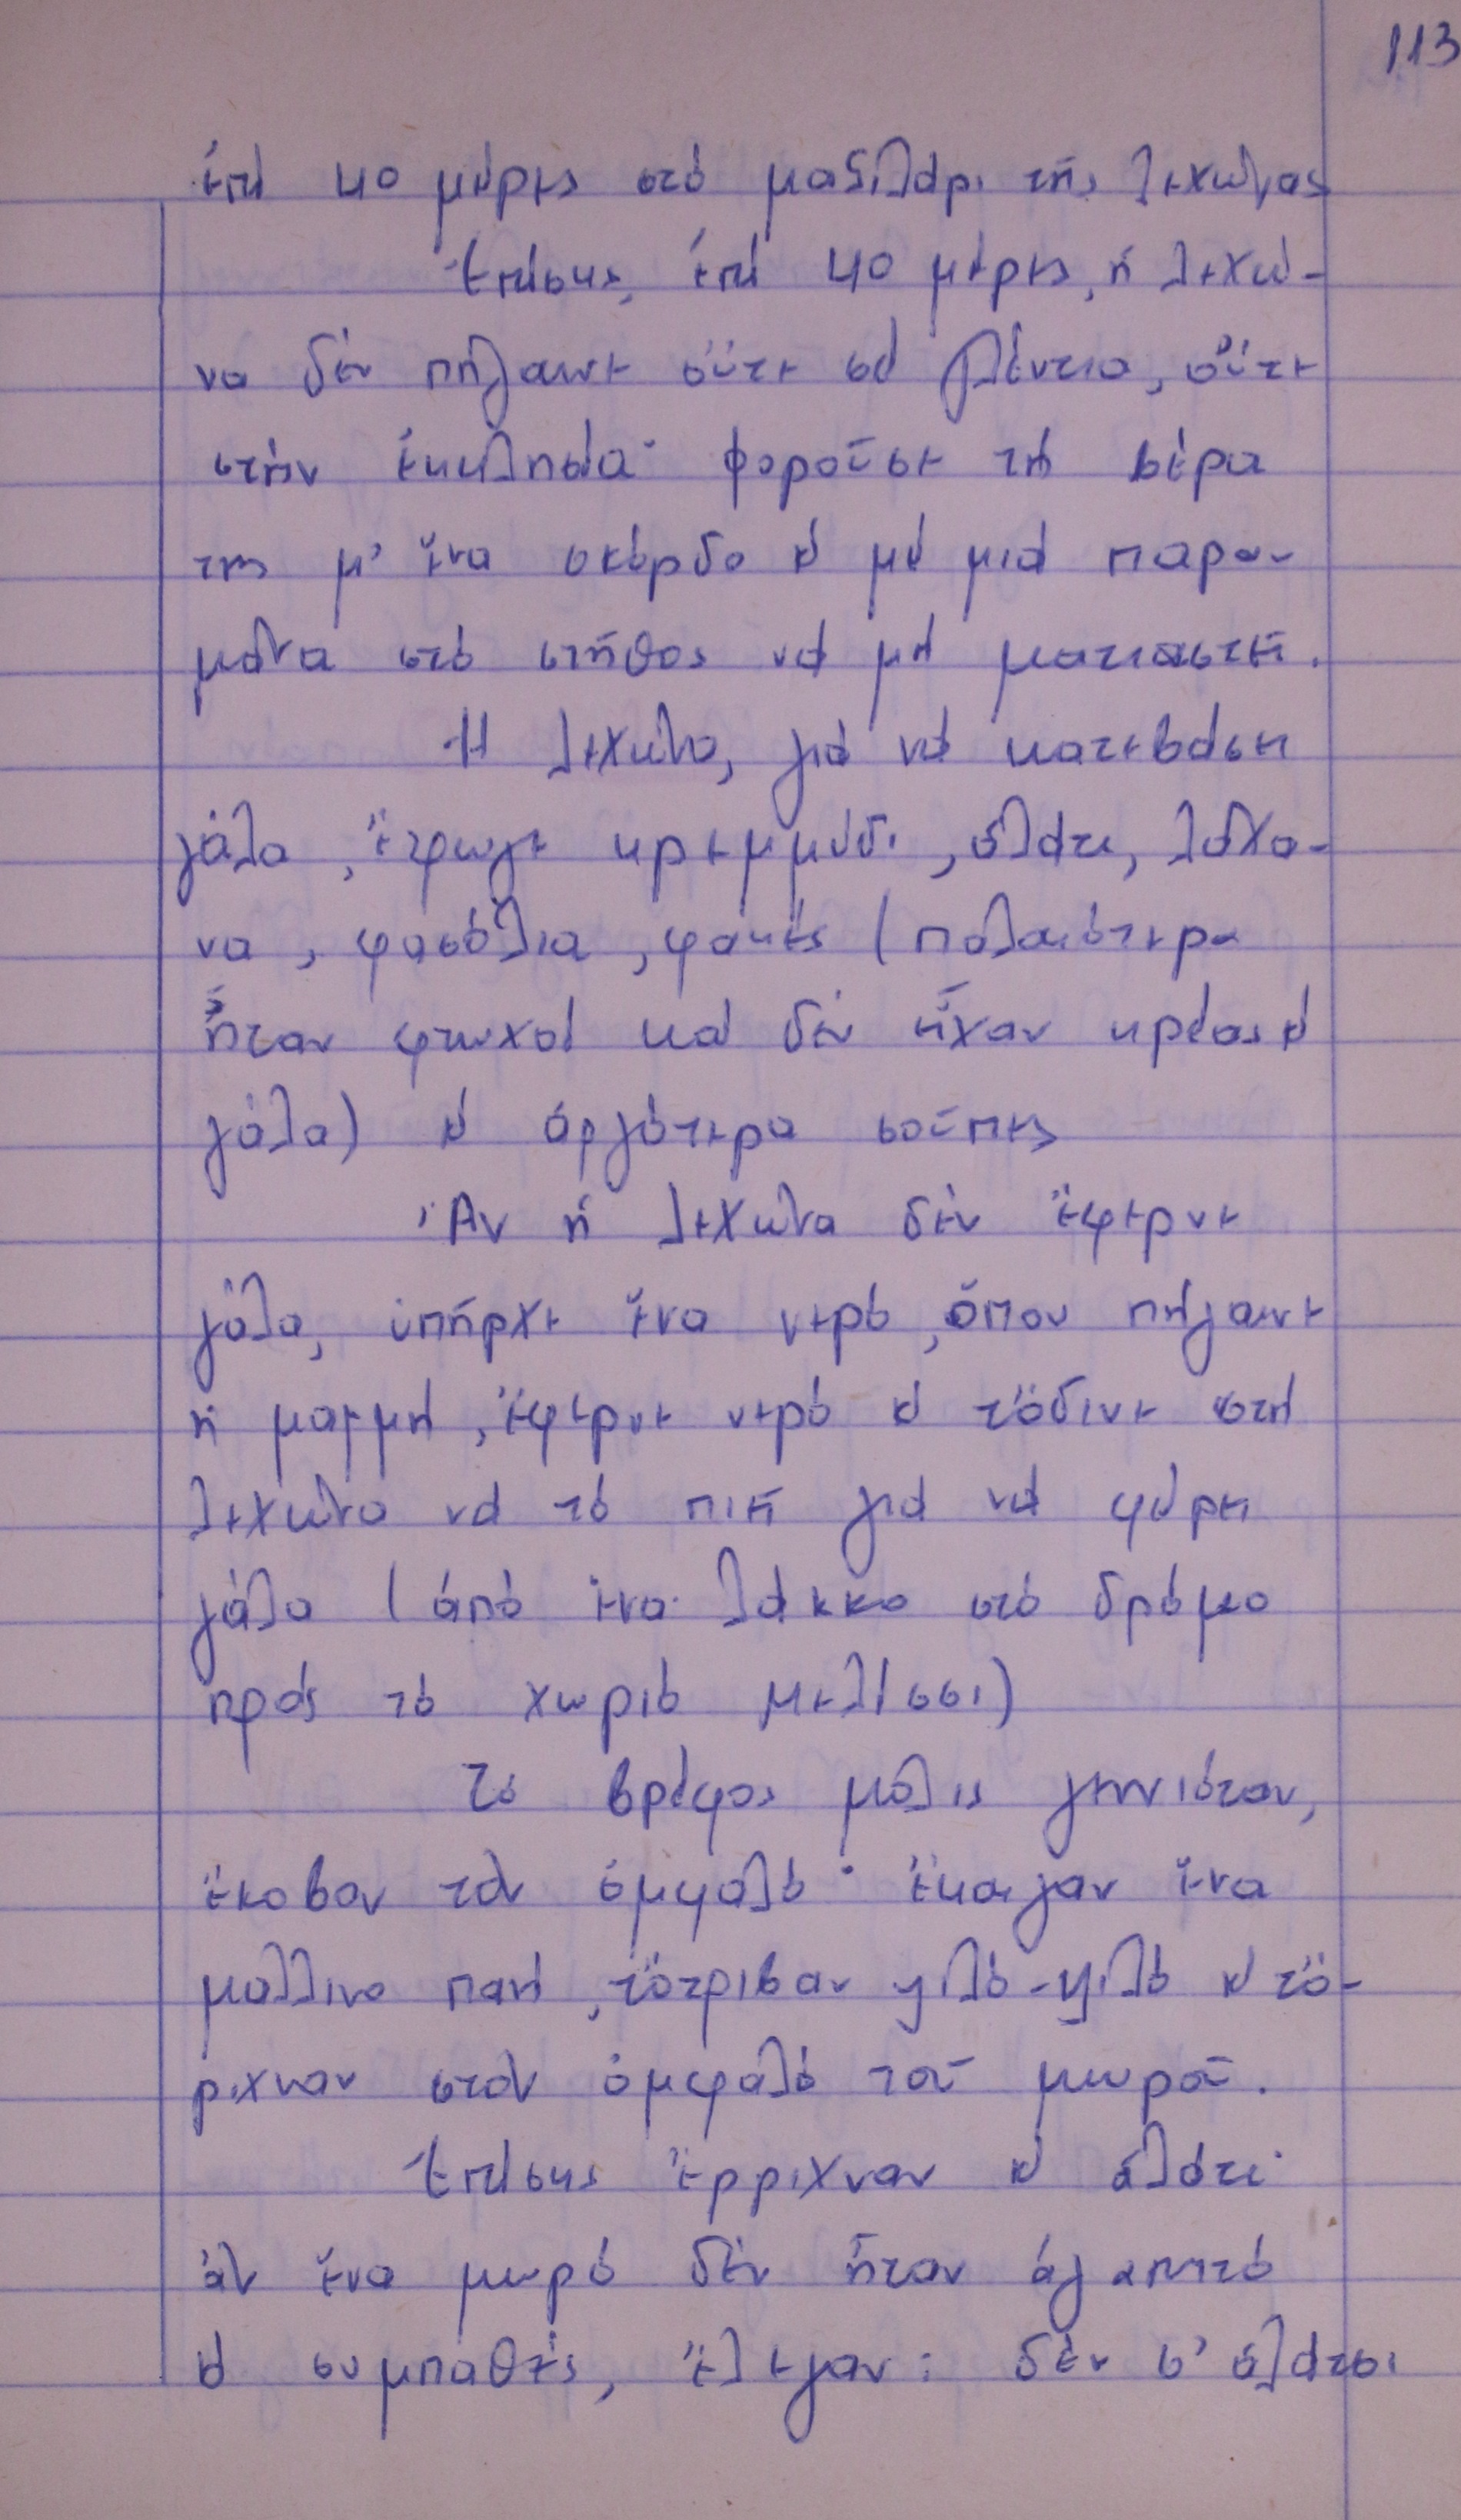 113
ἐπί 40 μέρες στό μαξιλάρι τῆς λεχώνας
Ἐπίσης, ἐπί 40 μέρες, ἡ λεχώ-
να δέν πήγαινε οὔτε σέ γλέντια, οὔτε
στήν ἐκκλησία· φοροῦσε τή βέρα
της μ' ἕνα σκόρδο κ' μέ μιά παρα-
μάνα στό στῆθος νά μή ματιαστῆ.
Ἡ λεχώνα, γιά νά κατεβάση
γάλα, ἔτρωγε κρεμμύδι, ἁλάτι, λάχα-
να, φασόλια, φακές (παλαιότερα
ἦταν φτωχοί καί δέν εἶχαν κρέας κ'
γάλα) κ' ἀργότερα σοῦπες
Ἄν ἡ λεχώνα δέν ἔφερνε
γάλα, ὑπῆρχε ἕνα νερό, ὅπου πήγαινε
ἡ μαμμή, ἔφερνε νερό κ' τὄδινε στή
λεχώνα νά τό πιῆ γιά νά φέρη
γάλα (ἀπό ἕνα λάκκο στό δρόμο
πρός τό χωριό Μελίσσι)
Τό βρέφος μόλις γεννιόταν,
ἔκοβαν τόν ὀμφαλό· ἔκαιγαν ἕνα
μάλλινο πανί, τὄτριβαν ψιλό-ψιλό κ' τὄ-
ριχναν στόν ὀμφαλό τοῦ μωροῦ.
Ἐπίσης ἔρριχναν κ' ἁλάτι·
ἄν ἕνα μωρό δέν ἦταν ἀγαπητό
κ' συμπαθές, ἔλεγαν: δέν σ' ἁλάτσι